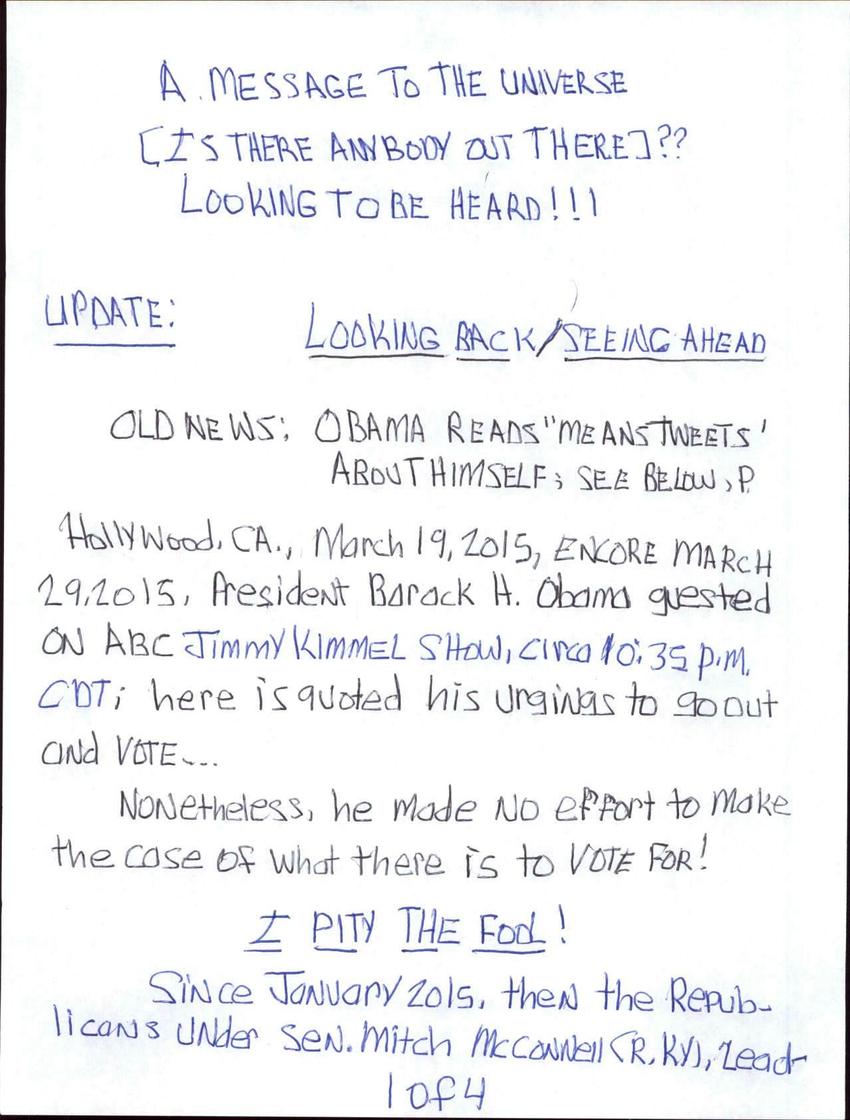 A. MESSAGE TO THE UNIVERSE
[IS THERE ANYBODY OUT THERE]??
LOOKING TO BE HEARD!!!
UPDATE:
LOOKING BACK/SEEING AHEAD
OLD NEWS: OBAMA READS "MEANS TWEETS'
ABOUT HIMSELF; SEE BELOW, P.
Hollywood, CA., March 19, 2015, ENCORE MARCH
29, 2015, President Barack H. Obama guested
ON ABC JIMMY KIMMEL SHOW, circa 10:35 p.m.
CDT; here is quoted his urgings to go out
and VOTE....
Nonetheless, he made NO effort to make
the case of what there is to VOTE FOR!
I PITY THE FOOL!
Since January 2015, then the Repub-
licans under Sen. Mitch McConnell (R, KY), Lead-
1 of 4